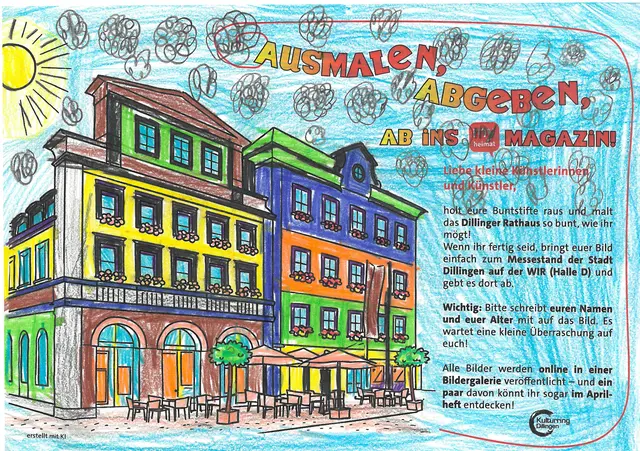 AUSMALEN,
ABGEBEN,
AB INS heimat MAGAZIN!
Liebe kleine Künstlerinnen
und Künstler,
holt eure Buntstifte raus und malt
das Dillinger Rathaus so bunt, wie ihr
mögt!
Wenn ihr fertig seid, bringt euer Bild
einfach zum Messestand der Stadt
Dillingen auf der WIR (Halle D) und
gebt es dort ab.
Wichtig: Bitte schreibt euren Namen
und euer Alter mit auf das Bild. Es
wartet eine kleine Überraschung auf
euch!
Alle Bilder werden online in einer
Bildergalerie veröffentlicht – und ein
paar davon könnt ihr sogar im April-
heft entdecken!
Kulturring
Dillingen
erstellt mit KI